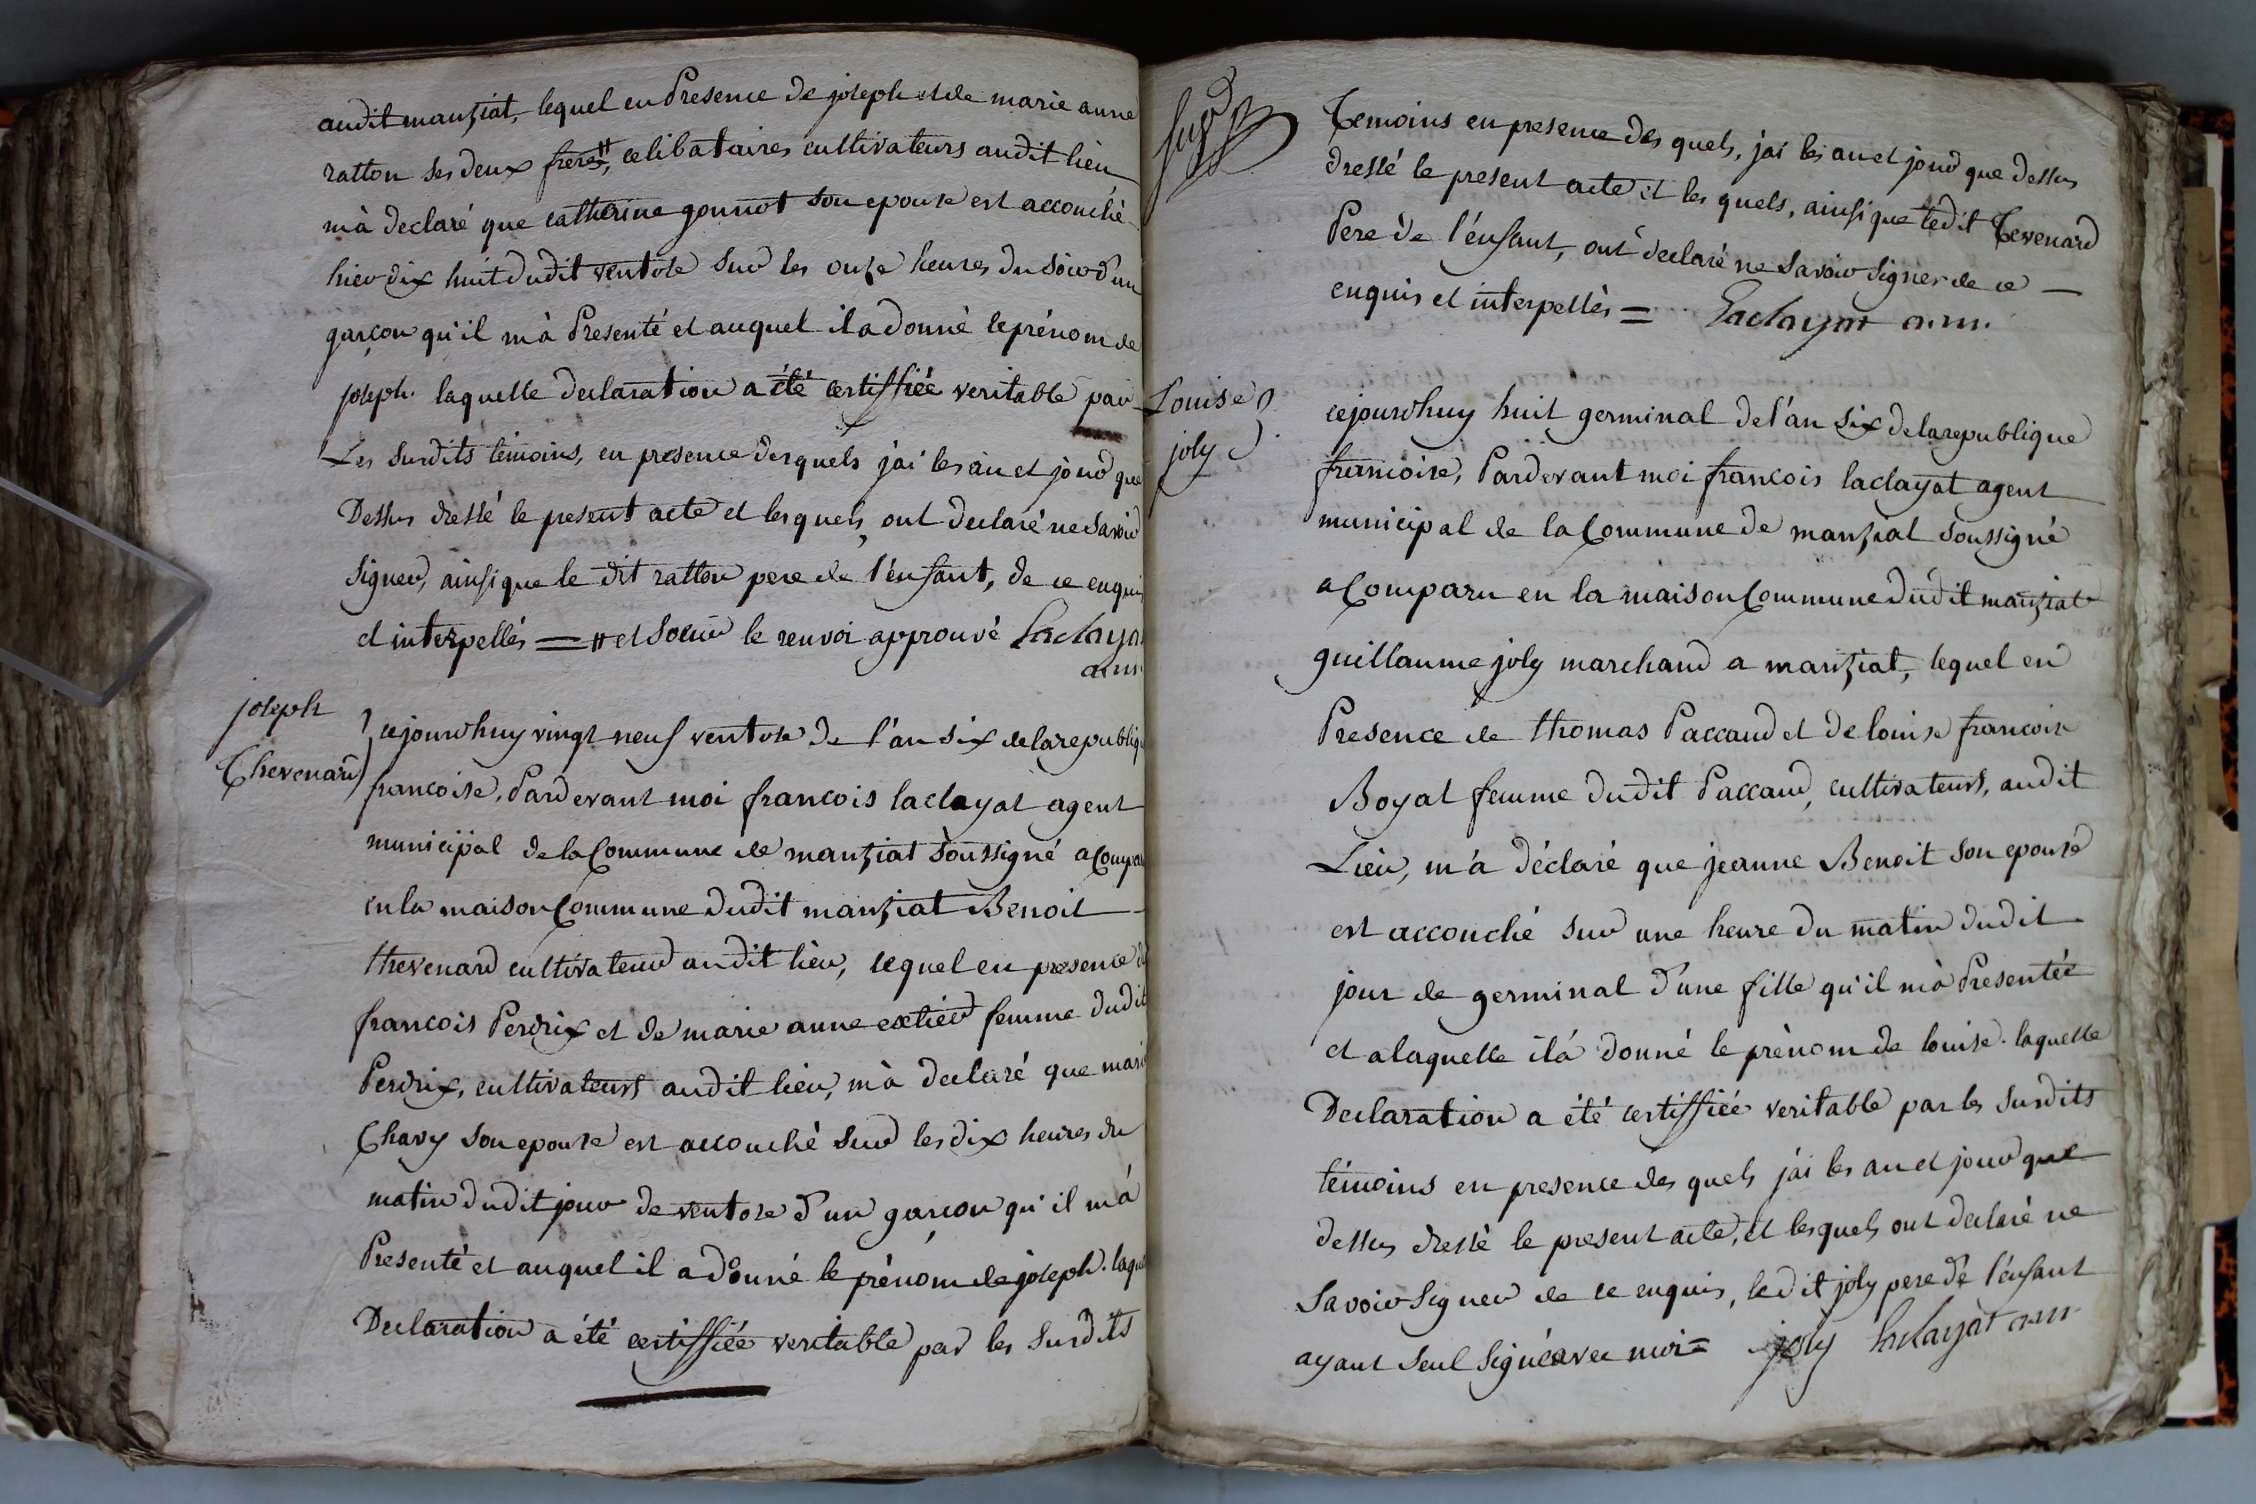 audit manziat, lequel en Presence de joseph et de marie anne
ratton ses deux freres, # celibataires cultivateurs audit lieu
m'à declaré que catherine gonnot son epouse est accouché
hier dix huit dudit ventose sur les onze heures du soir d'un
garçon qu'il m'à Presenté et auquel il a donné le prénom de
joseph. laquelle declaration a été certiffiée veritable par
Les susdits témoins, en presence desquels j'ai les an et jour que
Dessus dressé le present acte et lesquels, ont declaré ne savoir
signer, ainsi que le dit ratton pere de l'enfant, de ce enquis
et interpellés = # et soeur le renvoi approuvé Laclayat
a.m.
joseph
Thevenard
cejourdhuy vingt neuf ventose de l'an six de la republique
francoise, Pardevant moi francois laclayat agent
municipal de la Commune de manziat soussigné a Compa
en la maison Commune dudit manziat Benoit
thevenard cultivateur audit lieu, lequel en presence de
francois Perdrix et de marie anne extier femme dudit
Perdrix, cultivateurs audit lieu, m'à declaré que marie
Chavy son epouse est accouché sur les dix heures du
matin dudit jour de ventose d'un garcon qu'il m'à
Presenté et auquel il a donné le prénom de joseph. laque
Declaration a été certiffiée veritable par les susdits
Temoins en presence des quels, j'ai les an et jour que dessus
dressé le present acte et les quels, ainsi que ledit Tevenard
Pere de l'enfant, ont declaré ne savoir signer de ce
enquis et interpellés = Laclayat a.m.
Louise
joly
cejourdhuy huit germinal de l'an six de la republique
francoise, Pardevant moi francois laclayat agent
municipal de la Commune de manziat soussigné
a Comparu en la maison Commune dudit manziat
guillaume joly marchand a manziat, lequel en
Presence de thomas Paccaud et de louise francoise
Boyat femme dudit Paccaud, cultivateurs, audit
Lieu, m'a déclaré que jeanne Benoit son epouse
est accouché sur une heure du matin dudit
jour de germinal d'une fille qu'il m'à Presentée
et a laquelle il a donné le prénom de louise. laquelle
Declaration a été certiffiée veritable par les susdits
témoins en presence des quels j'ai les an et jour que
dessus dressé le present acte, et lesquels ont declaré ne
savoir signer de ce enquis, le dit joly pere de l'enfant
ayant seul signé avec moi = joly laclayat a.m.